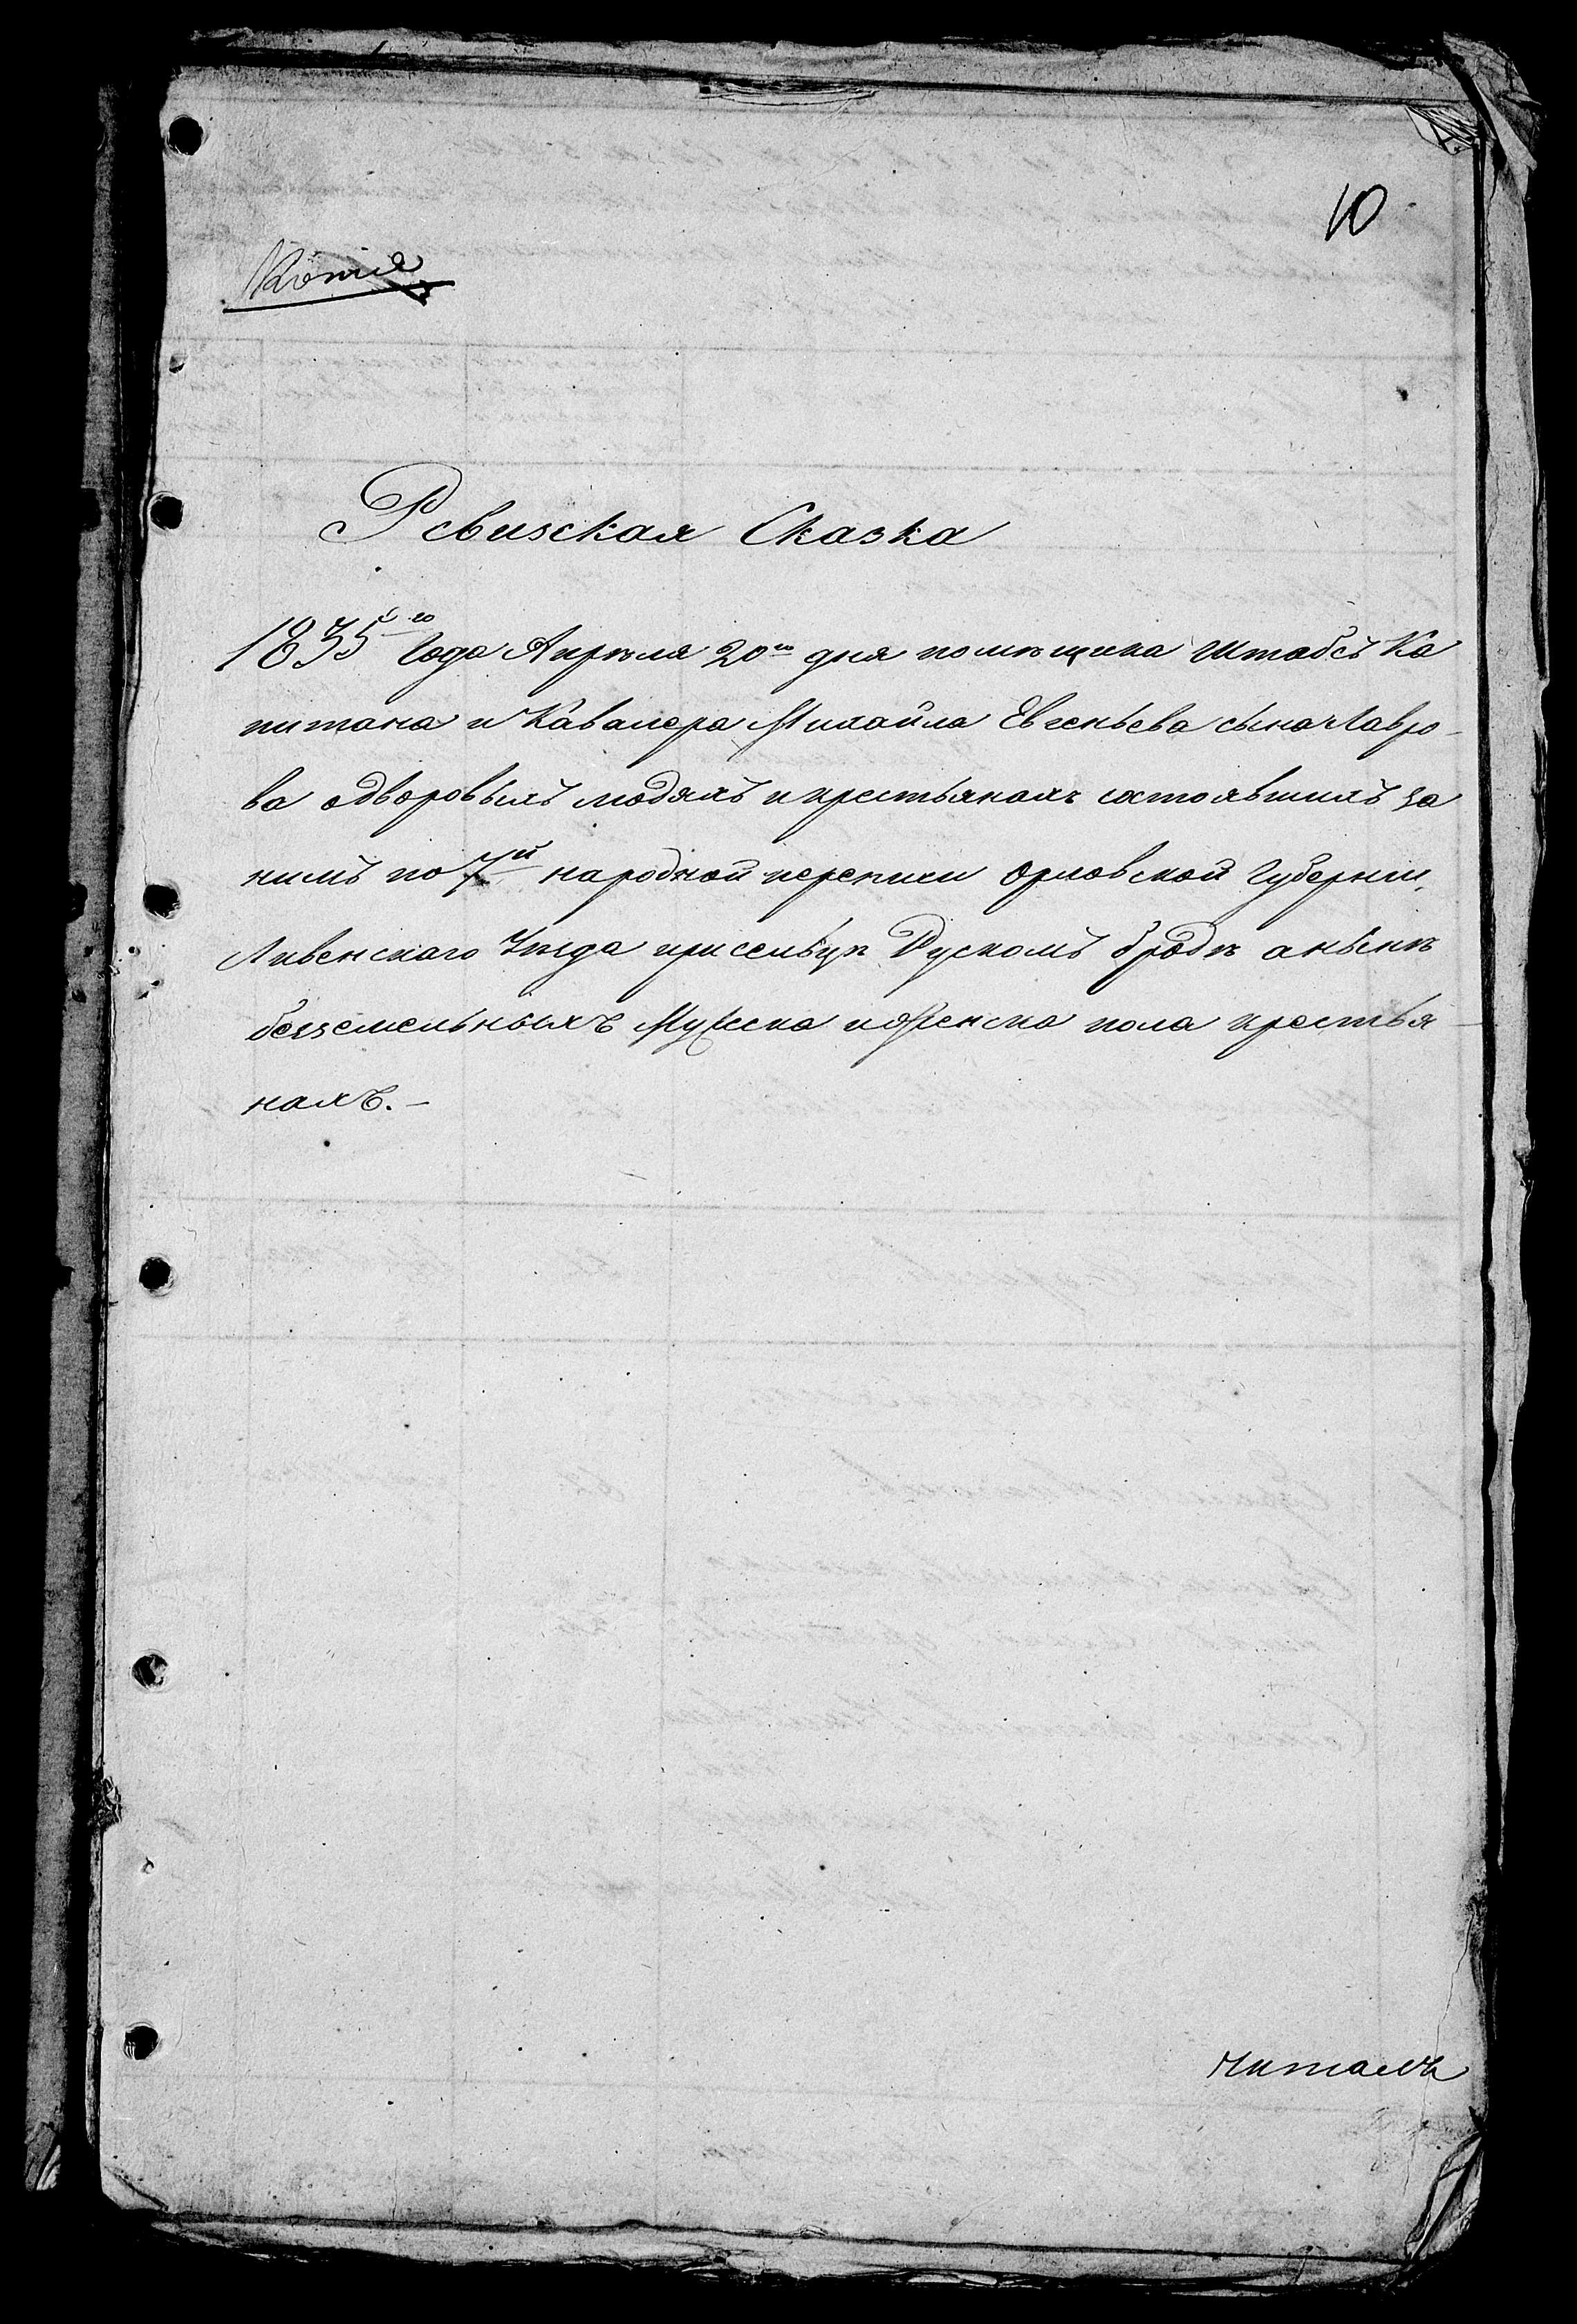 10
Копiя
Ревизская Сказка
1835го Года Апрѣля 20го дня помѣщика Штабсъ Ка
питана и Кавалера Михайла Евгеньева сына Лавро-
ва одворовыхъ людяхъ и крестьянахъ состоявшихъ за
нимъ по 7й народной переписи Орловской Губернiи,
Ливенскаго Уѣзда присельцѣ Рускомъ бродѣ а нынѣ
безземельныхъ Мужеска и Женска пола крестья-
нахъ.-
читалъ